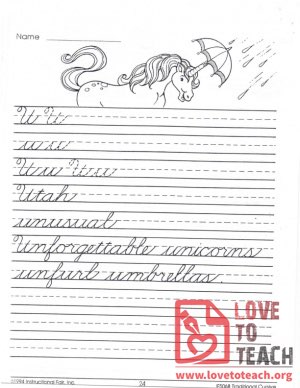 Name
U U
u u
Uu Uu
Utah
unusual
Unforgettable unicorns
unfurl umbrellas.
LOVE
TO
TEACH
www.lovetoteach.org
©1994 Instructional Fair, Inc.
24
IF5068 Traditional Cursive